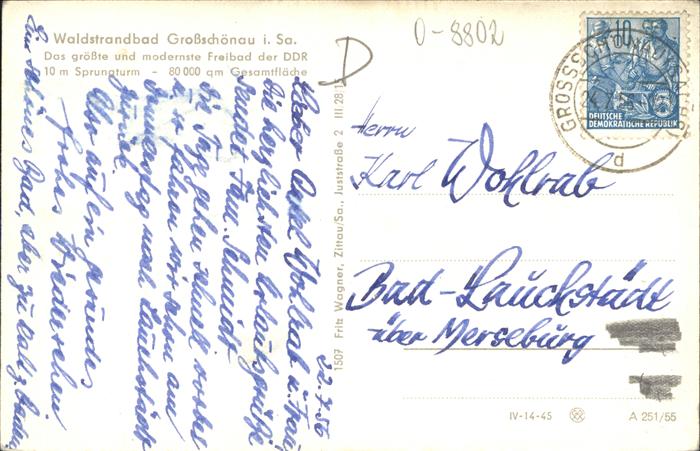 Waldstrandbad Großschönau i. Sa.
Das größte und modernste Freibad der DDR
10 m Sprungturm - 80 000 qm Gesamtfläche
O-8802
D
22.7.56
Lieber Onkel Wohlrab u. Frau
die herzlichsten Urlaubsgrüße
sendet Fam. Schmidt
die Tage gehen schnell
wir fahren schon am
Donnerstag nach Lauchstädt
zurück.
Also auf ein gesundes
frohes Wiedersehen.
Ein schönes Bad, aber zu kalt z. Baden
1507 Fritz Wagner, Zittau/Sa., Juststraße 2 III 28 1
10
DEUTSCHE
DEMOKRATISCHE REPUBLIK
GROSSSCHÖNAU (SACHS)
d
Herrn
Karl Wohlrab
Bad-Lauchstädt
über Merseburg
IV-14-45
A 251/55